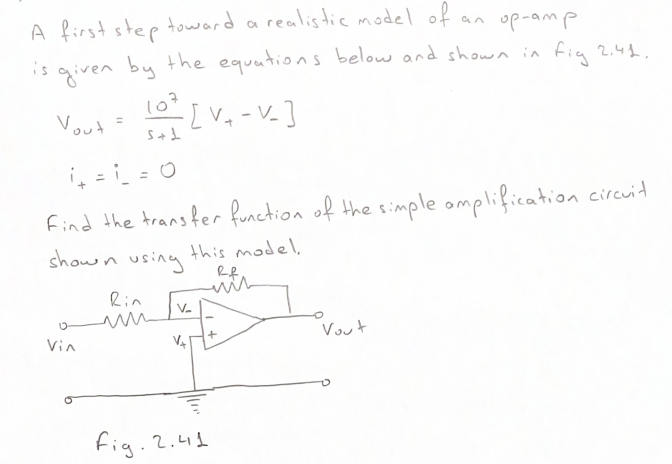 A first step toward a realistic model of an op-amp
is given by the equations below and shown in fig 2.41.
Vout = 10⁷/(s+1) [V₊ - V₋]
i₊ = i₋ = 0
Find the transfer function of the simple amplification circuit
shown using this model.
Rf
Rin
V-
-
Vin
V+
+
Vout
fig. 2.41